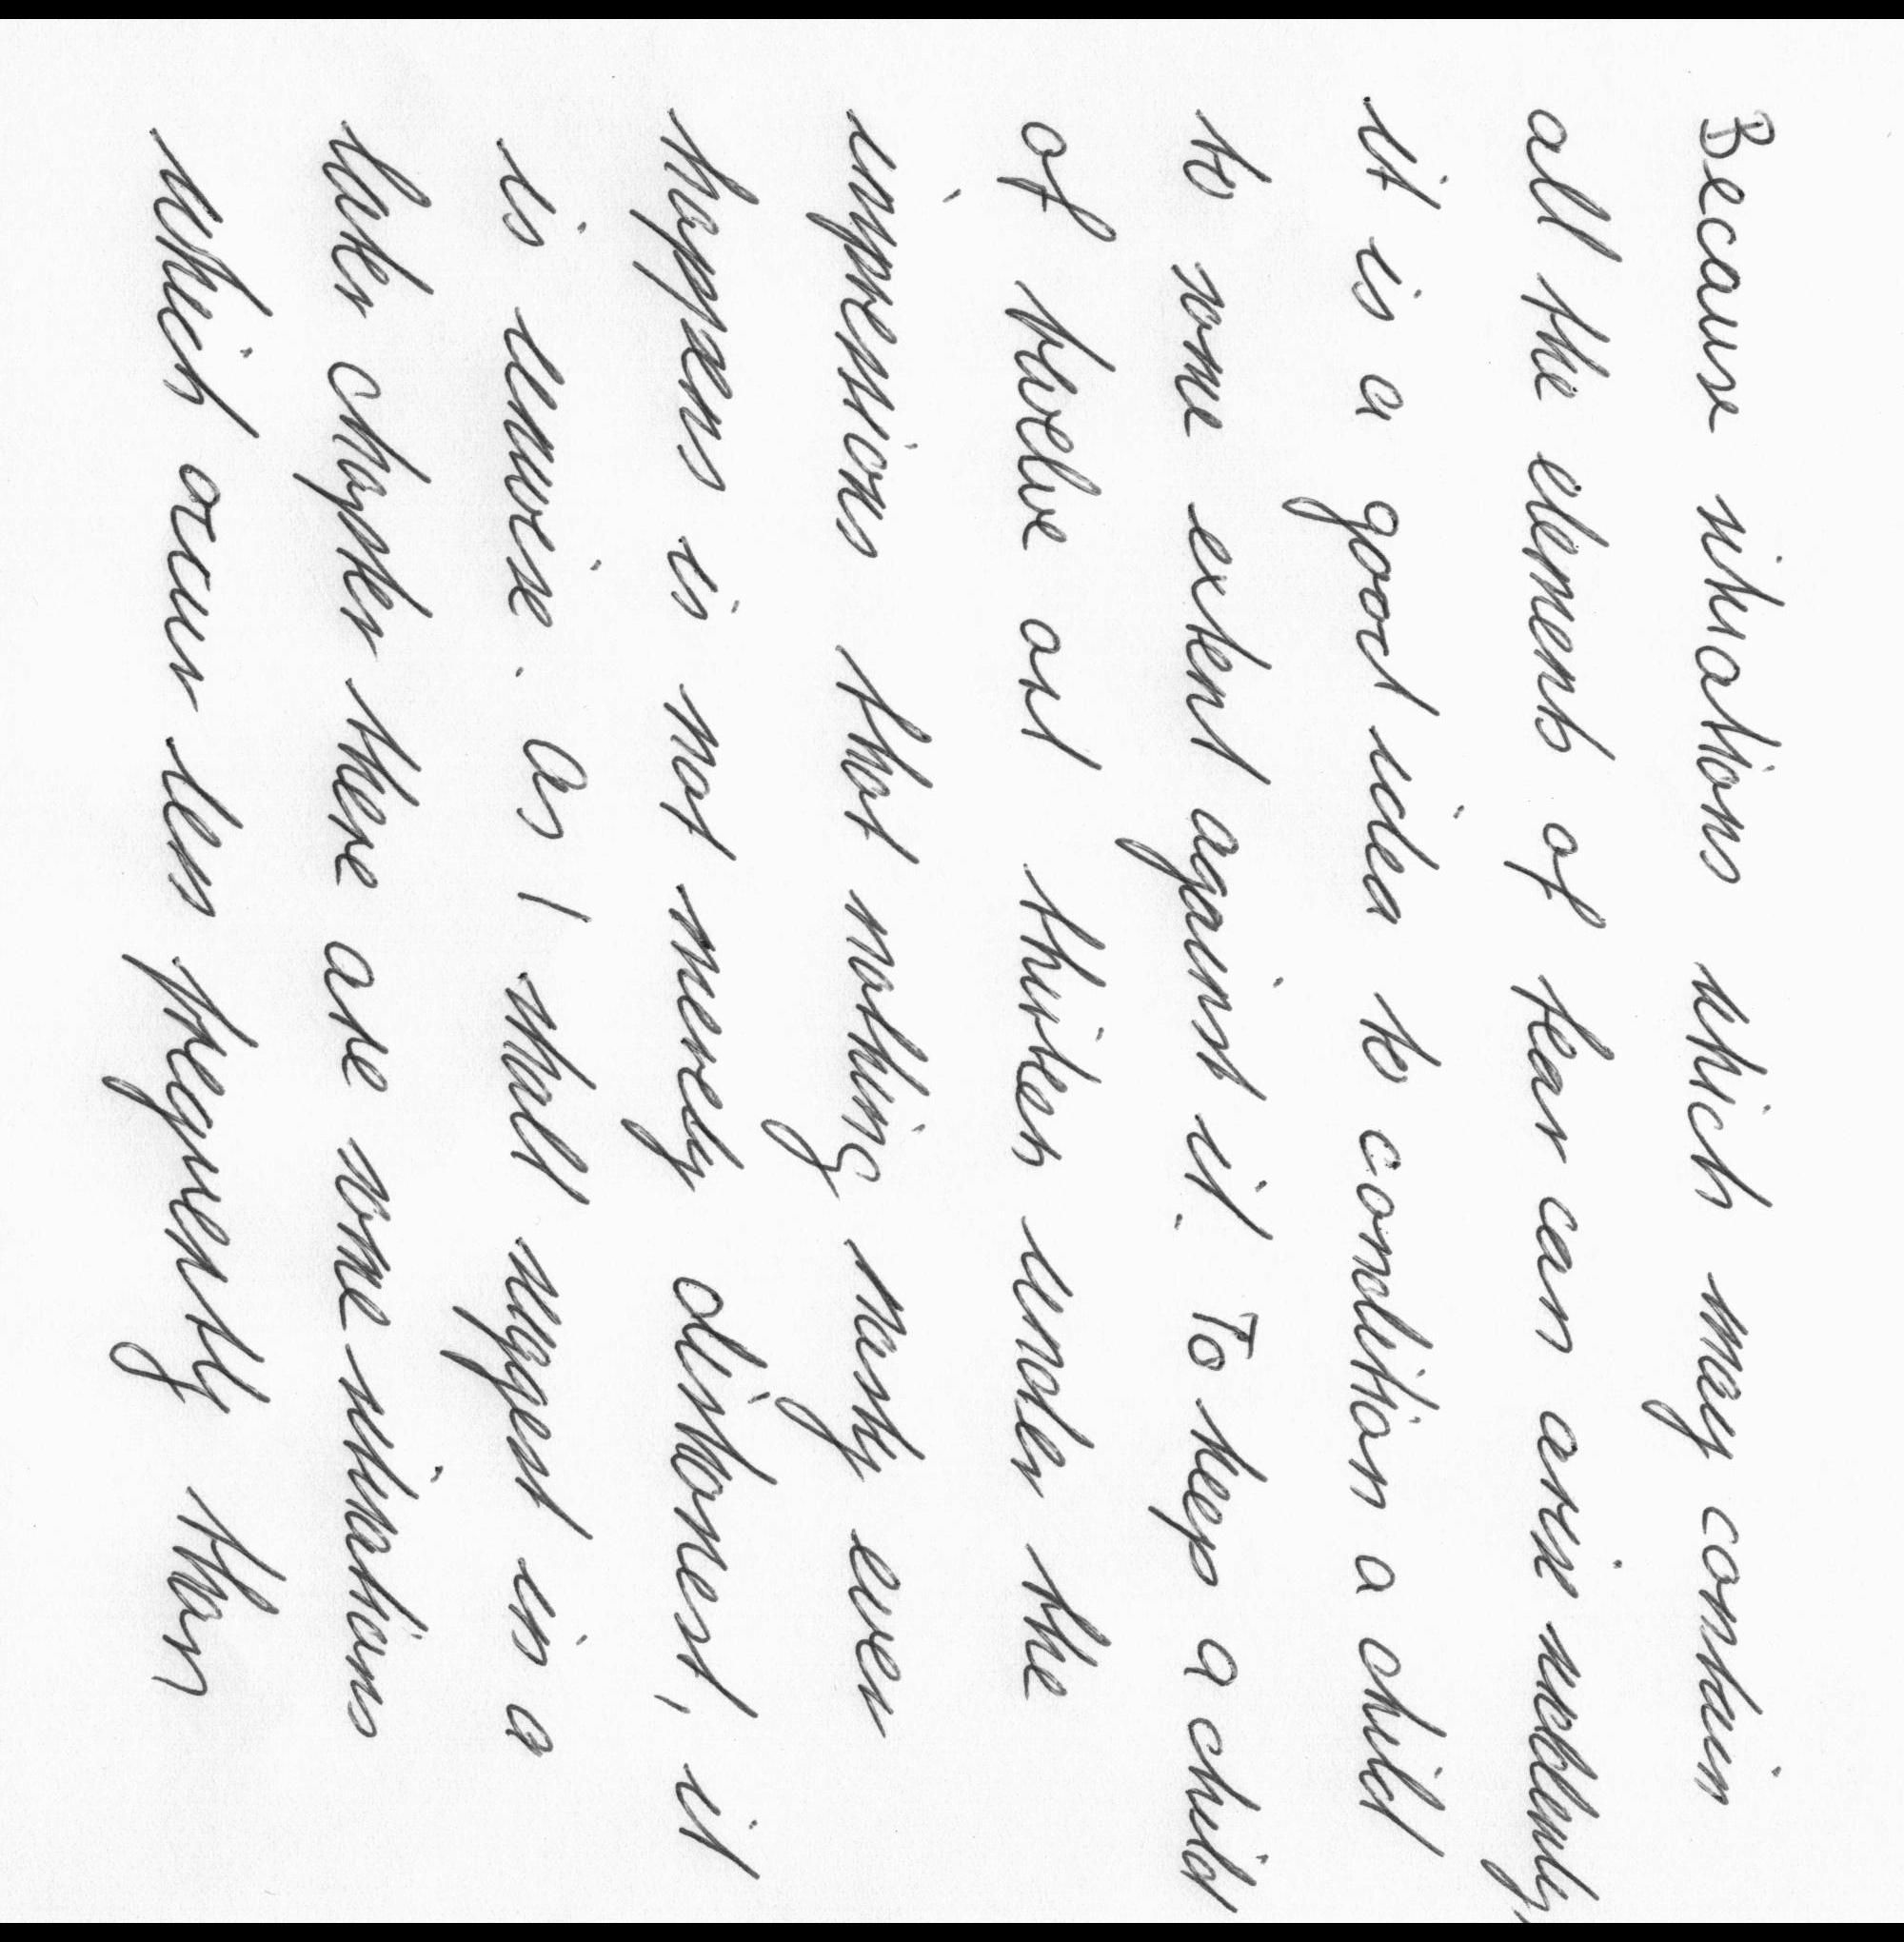 Because situations which may contain
all the elements of fear can arise suddenly,
it is a good idea to condition a child
to some extent against it. To keep a child
of twelve or thirteen under the
impressions that nothing nasty ever
happens is not merely dishonest, it
is unwise. As I shall suggest in a
later chapter there are some situations
which occur less frequently than